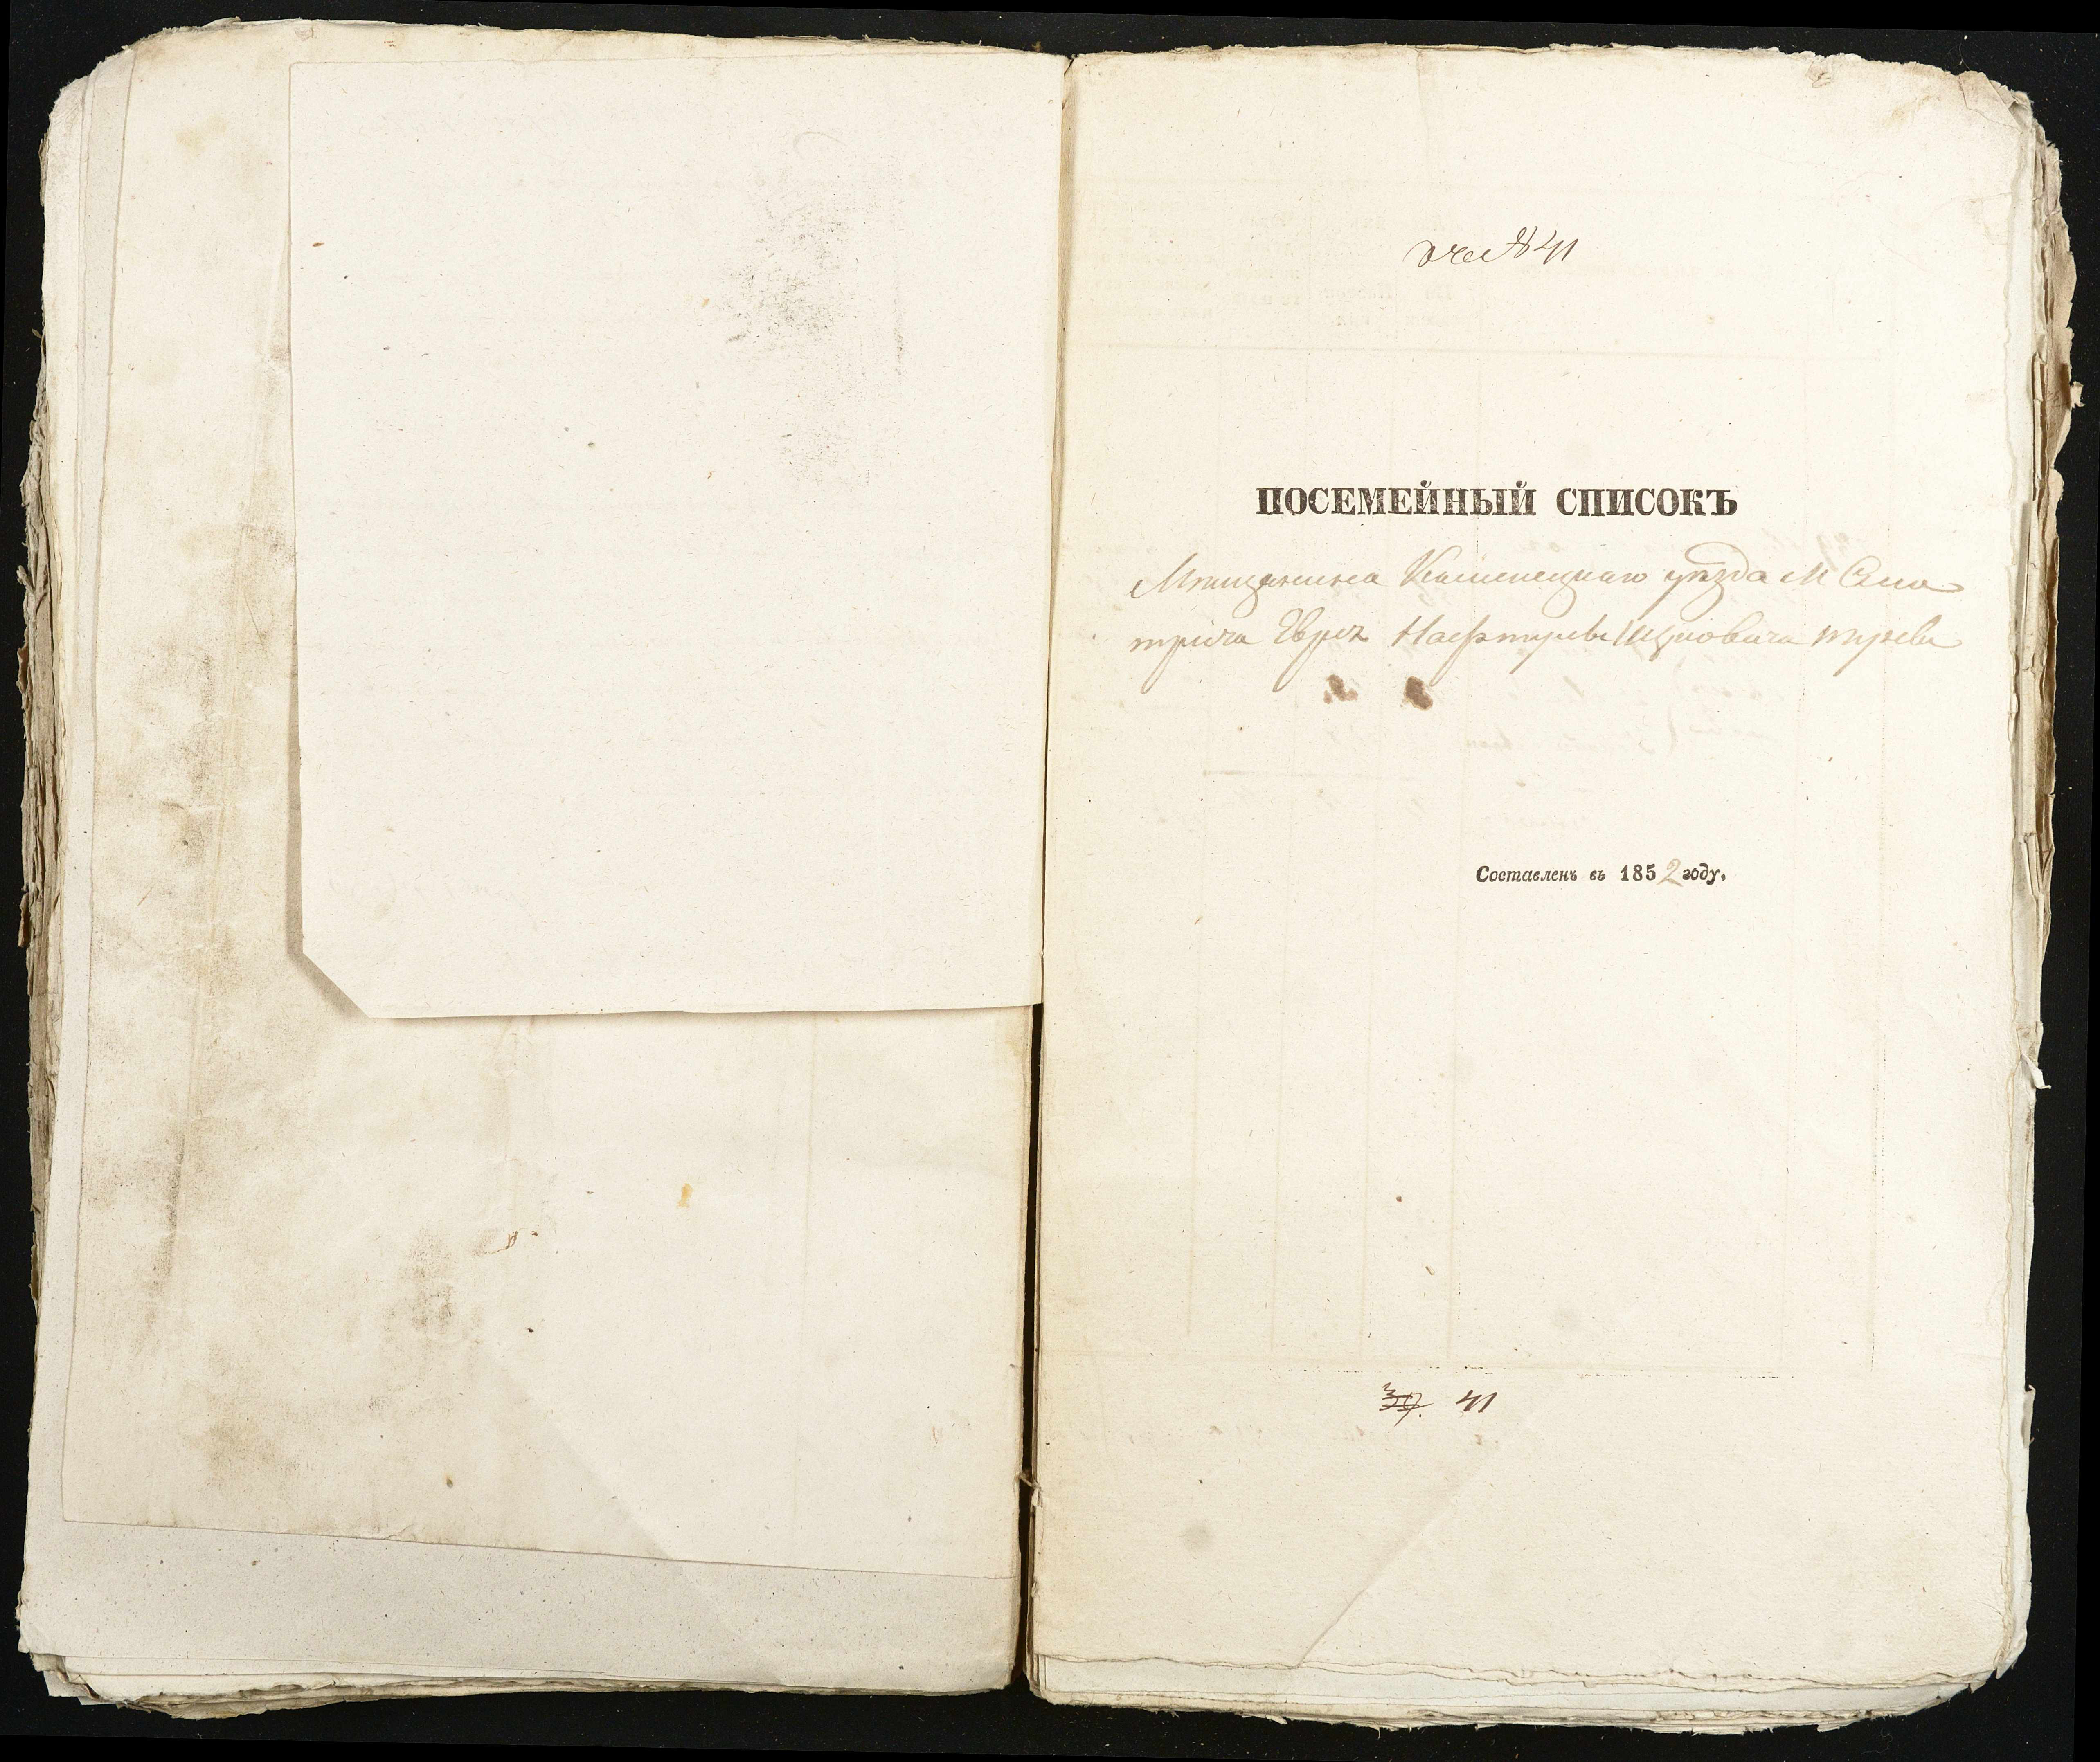 № 41
ПОСЕМЕЙНЫЙ СПИСОКЪ
Мѣщанина Каменецкаго уѣзда М Смо
трича Еврея Нафтулы
Составленъ въ 1852 году.
39. 41